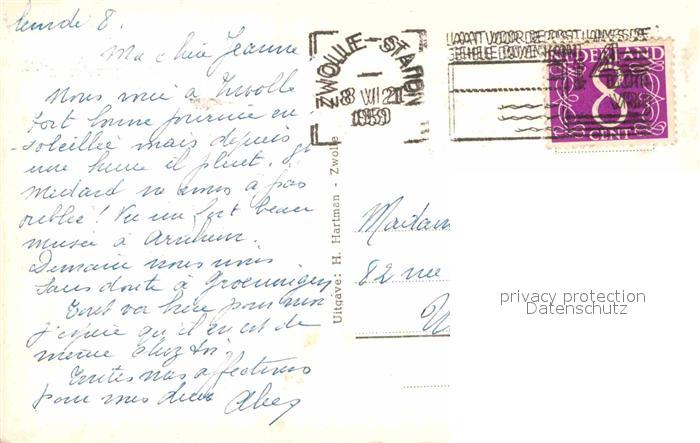 8.
Ma chère Jeanne
Nous voici à Zwolle
fort bonne journée en-
soleillée mais depuis
une heure il pleut. St
Medard ne nous a pas
oublié! Vu un fort beau
musée à Arnhem.
Demain nous irons
sans doute à Groeningen
Tout va bien pour nous
j'espère qu'il en est de
même chez toi.
Toutes nos affections
pour vous deux
ZWOLLE-STATION
8 VII 21
1959
NEDERLAND
8
CENT
Uitgave: H. Hartman - Zwolle
Madam
82 rue
privacy protection
Datenschutz